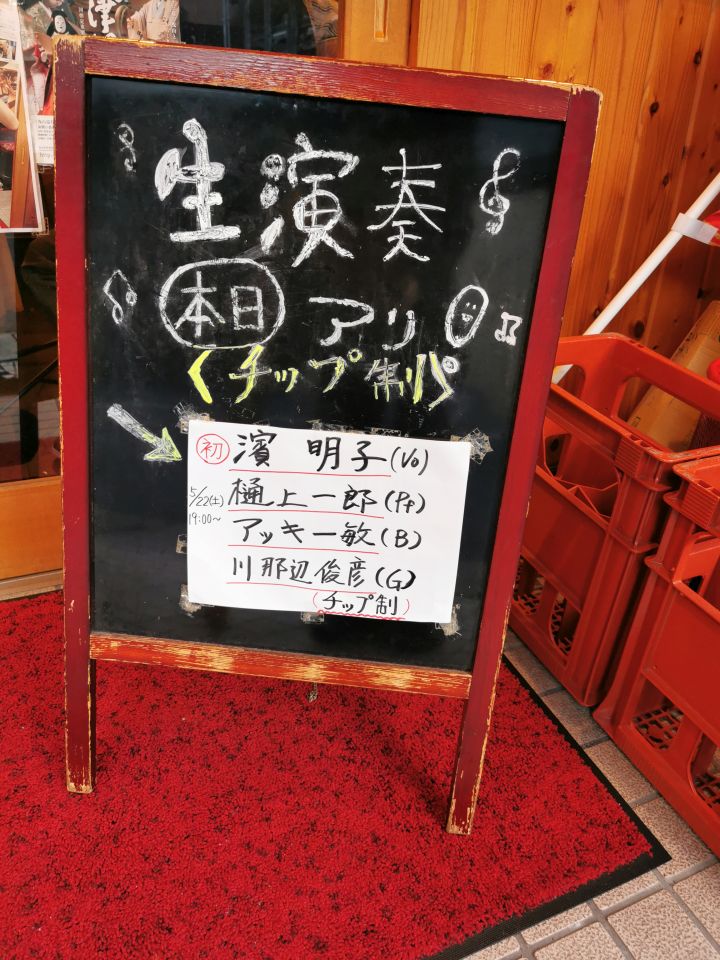 生演奏
本日 アリ
〈チップ制〉
初 濱 明子(Vo)
5/22(土) 樋上一郎(Pf)
19:00~ アッキー敏(B)
川那辺俊彦(G)
(チップ制)